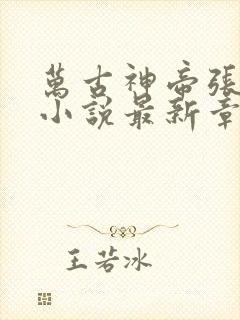 萬古神帝張
小說最新章
王若冰